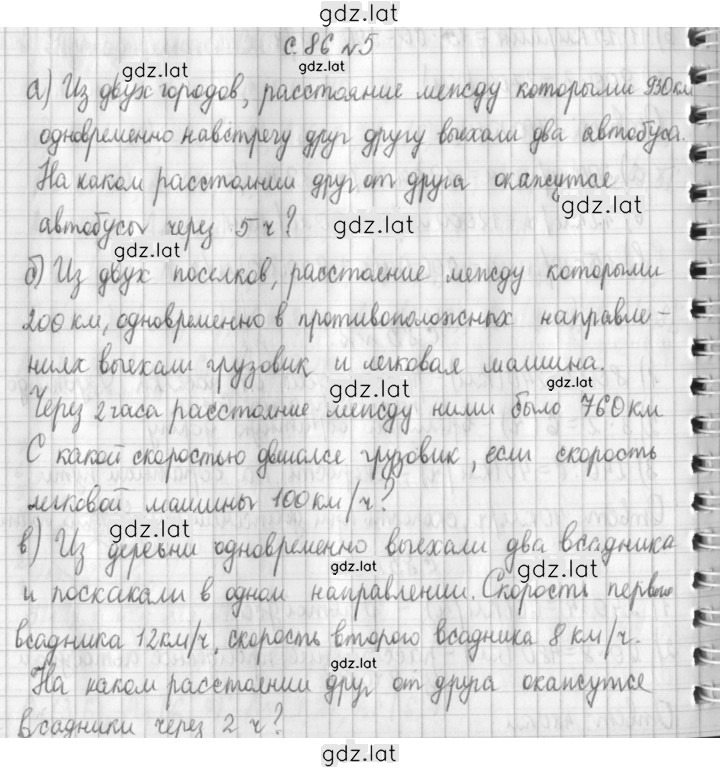 gdz.lat
с. 86 №5
gdz.lat gdz.lat
а) Из двух городов, расстояние между которыми 930 км
одновременно навстречу друг другу выехали два автобуса.
gdz.lat
На каком расстоянии друг от друга окажутся
gdz.lat
автобусы через 5 ч? gdz.lat
gdz.lat
б) Из двух поселков, расстояние между которыми
200 км, одновременно в противоположных направле-
ниях выехали грузовик и легковая машина.
gdz.lat gdz.lat
Через 2 часа расстояние между ними было 760 км
С какой скоростью двигался грузовик, если скорость
легковой машины 100 км/ч?
gdz.lat
в) Из деревни одновременно выехали два всадника
gdz.lat gdz.lat
и поскакали в одном направлении. Скорость первого
всадника 12 км/ч, скорость второго всадника 8 км/ч.
gdz.lat
На каком расстоянии друг от друга окажутся
всадники через 2 ч?
gdz.lat
gdz.lat